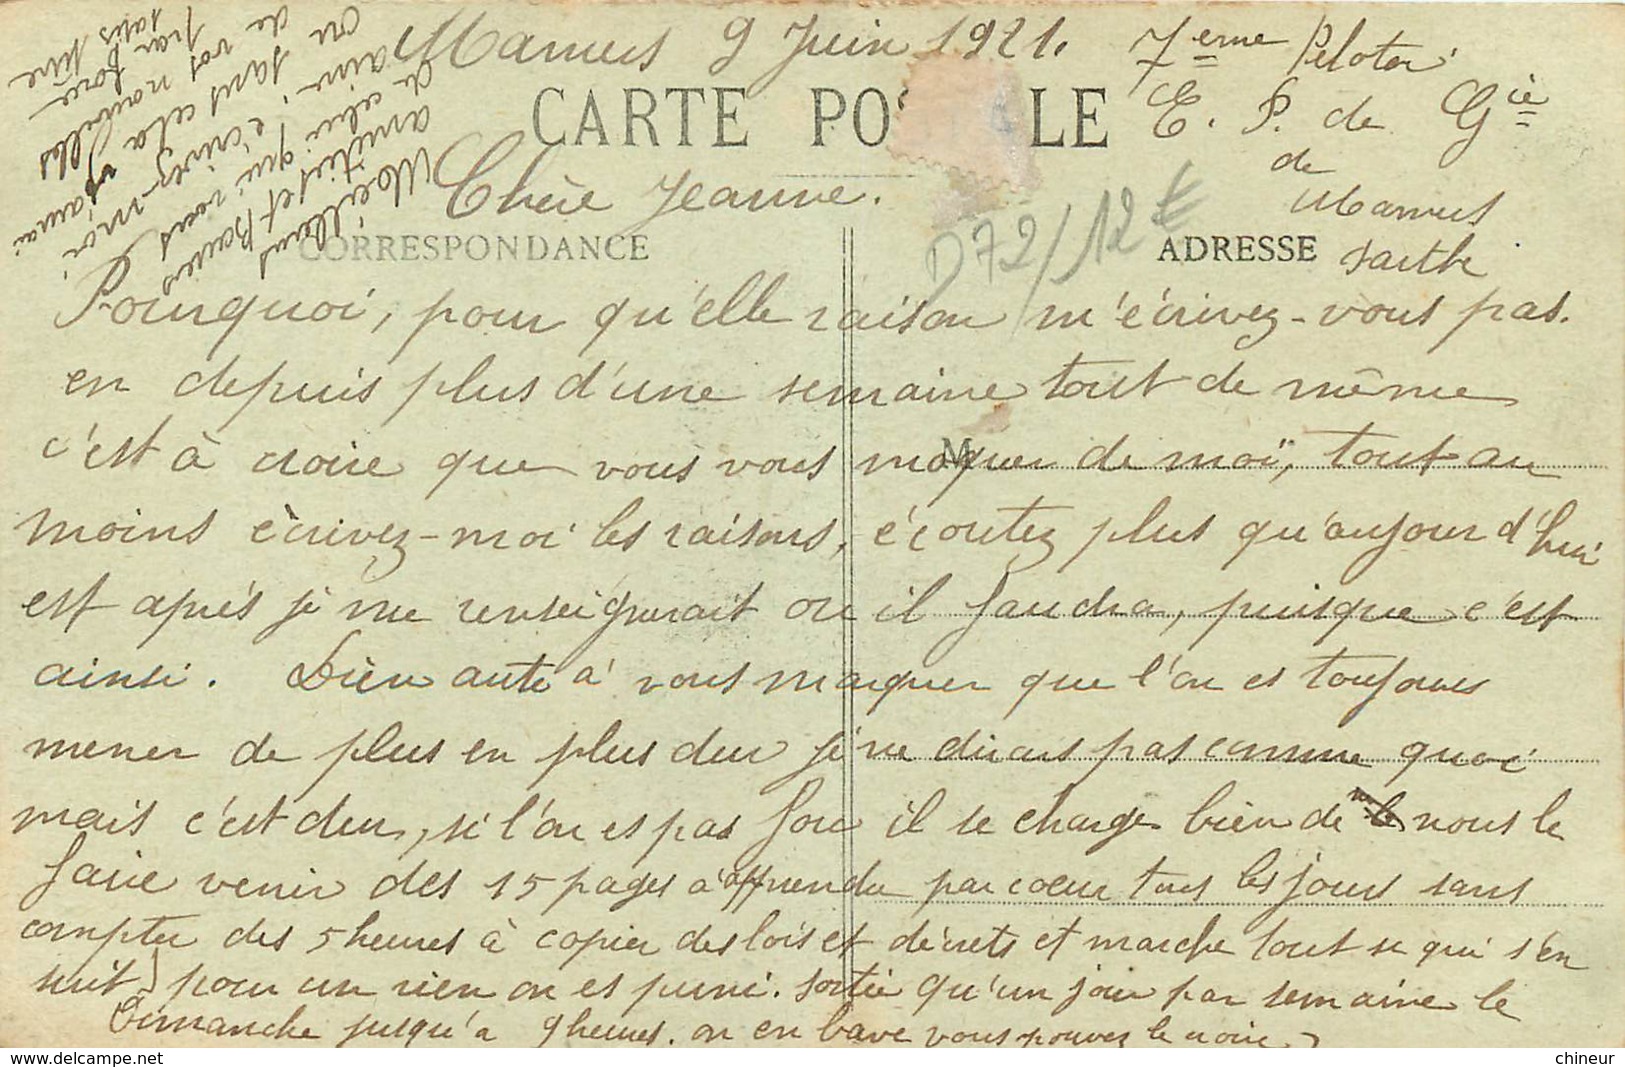 Mamers 9 Juin 1921. 7ème Peloton
CARTE PO LE
E. P. de Gie
de
Mamers
Sarthe
Chère Jeanne.
D72/12€
CORRESPONDANCE
ADRESSE
Pourquoi, pour qu'elle raison m'écrivez-vous pas.
en depuis plus d'une semaine tout de même
c'est à croire que vous vous moquer de moi, tout au
M
moins écrivez-moi les raisons, écoutez plus qu'aujourd'hui
est après je me renseignerait ou il faudra, puisque c'est
ainsi. Bien autre à vous marquer que l'on es toujours
mener de plus en plus dur je ne dirais pas comme quoi
mais c'est dur, si l'on es pas fou il se charge bien de nous le
faire venir des 15 pages à apprendre par coeur tous les jours sans
compter des 5 heures à copier des lois et décrets et marche tout se qui s'en
suit, pour un rien on es puni. Sortie qu'un jour par semaine le
Dimanche jusqu'à 9 heures. on en bave vous pouvez le croire
Meilleurs
amitiés et Baisers
de celui qui vous
aime. Ecrivez-moi
ou sans cela j'aurai
de vos nouvelles
par force
sans rire
chineur